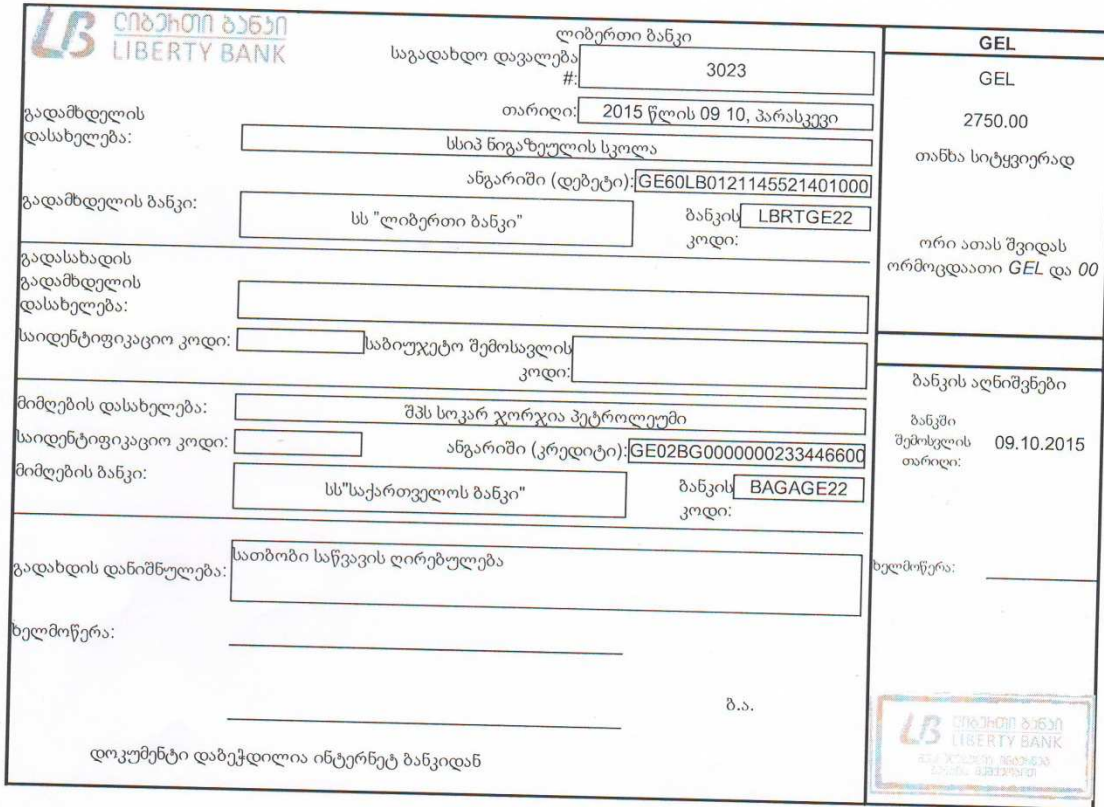 ლიბერთი ბანკი
LIBERTY BANK
ლიბერთი ბანკი
საგადახდო დავალება #: 3023
თარიღი: 2015 წლის 09 10, პარასკევი
გადამხდელის დასახელება: სსიპ ნიგაზეულის სკოლა
ანგარიში (დებეტი): GE60LB0121145521401000
გადამხდელის ბანკი: სს "ლიბერთი ბანკი" ბანკის კოდი: LBRTGE22
გადასახადის გადამხდელის დასახელება:
საიდენტიფიკაციო კოდი: საბიუჯეტო შემოსავლის კოდი:
მიმღების დასახელება: შპს სოკარ ჯორჯია პეტროლეუმი
საიდენტიფიკაციო კოდი: ანგარიში (კრედიტი): GE02BG0000000233446600
მიმღების ბანკი: სს"საქართველოს ბანკი" ბანკის კოდი: BAGAGE22
გადახდის დანიშნულება: სათბობი საწვავის ღირებულება
ხელმოწერა:
ბ.ა.
დოკუმენტი დაბეჭდილია ინტერნეტ ბანკიდან
GEL
GEL
2750.00
თანხა სიტყვიერად
ორი ათას შვიდას
ორმოცდაათი GEL და 00
ბანკის აღნიშვნები
ბანკში შემოსვლის თარიღი: 09.10.2015
ხელმოწერა:
ლიბერთი ბანკი
LIBERTY BANK